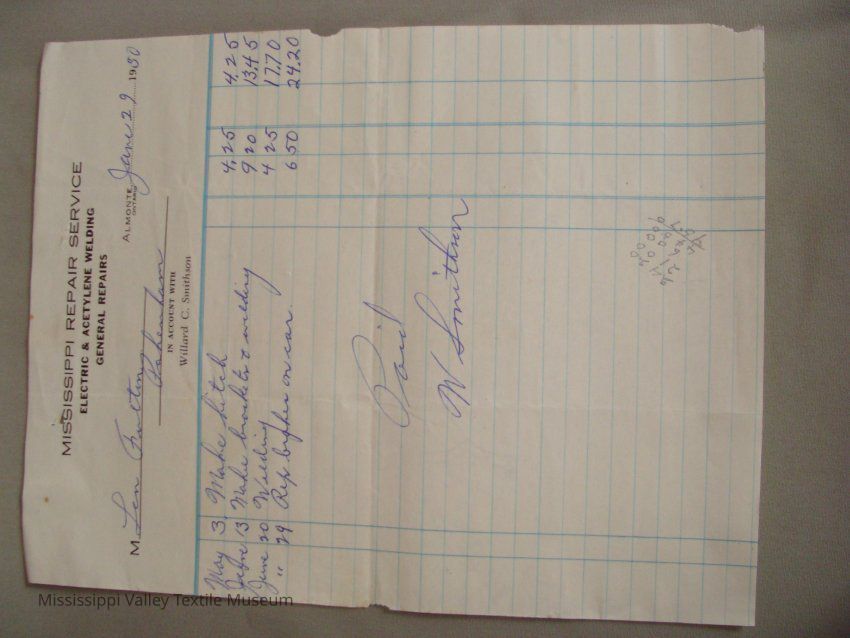 MISSISSIPPI REPAIR SERVICE
ELECTRIC & ACETYLENE WELDING
GENERAL REPAIRS
ALMONTE, ONTARIO June 29 1930
M Len Fulton
Pakenham
IN ACCOUNT WITH
Willard C. Smithson
May 3. Make hitch 4.25 4.25
13 Make brackets & welding 9.20 13.45
June 20 Welding 4 25 17.70
" 29 Rep on car. 6 50 24.20
Paid
W Smithson
Mississippi Valley Textile Museum